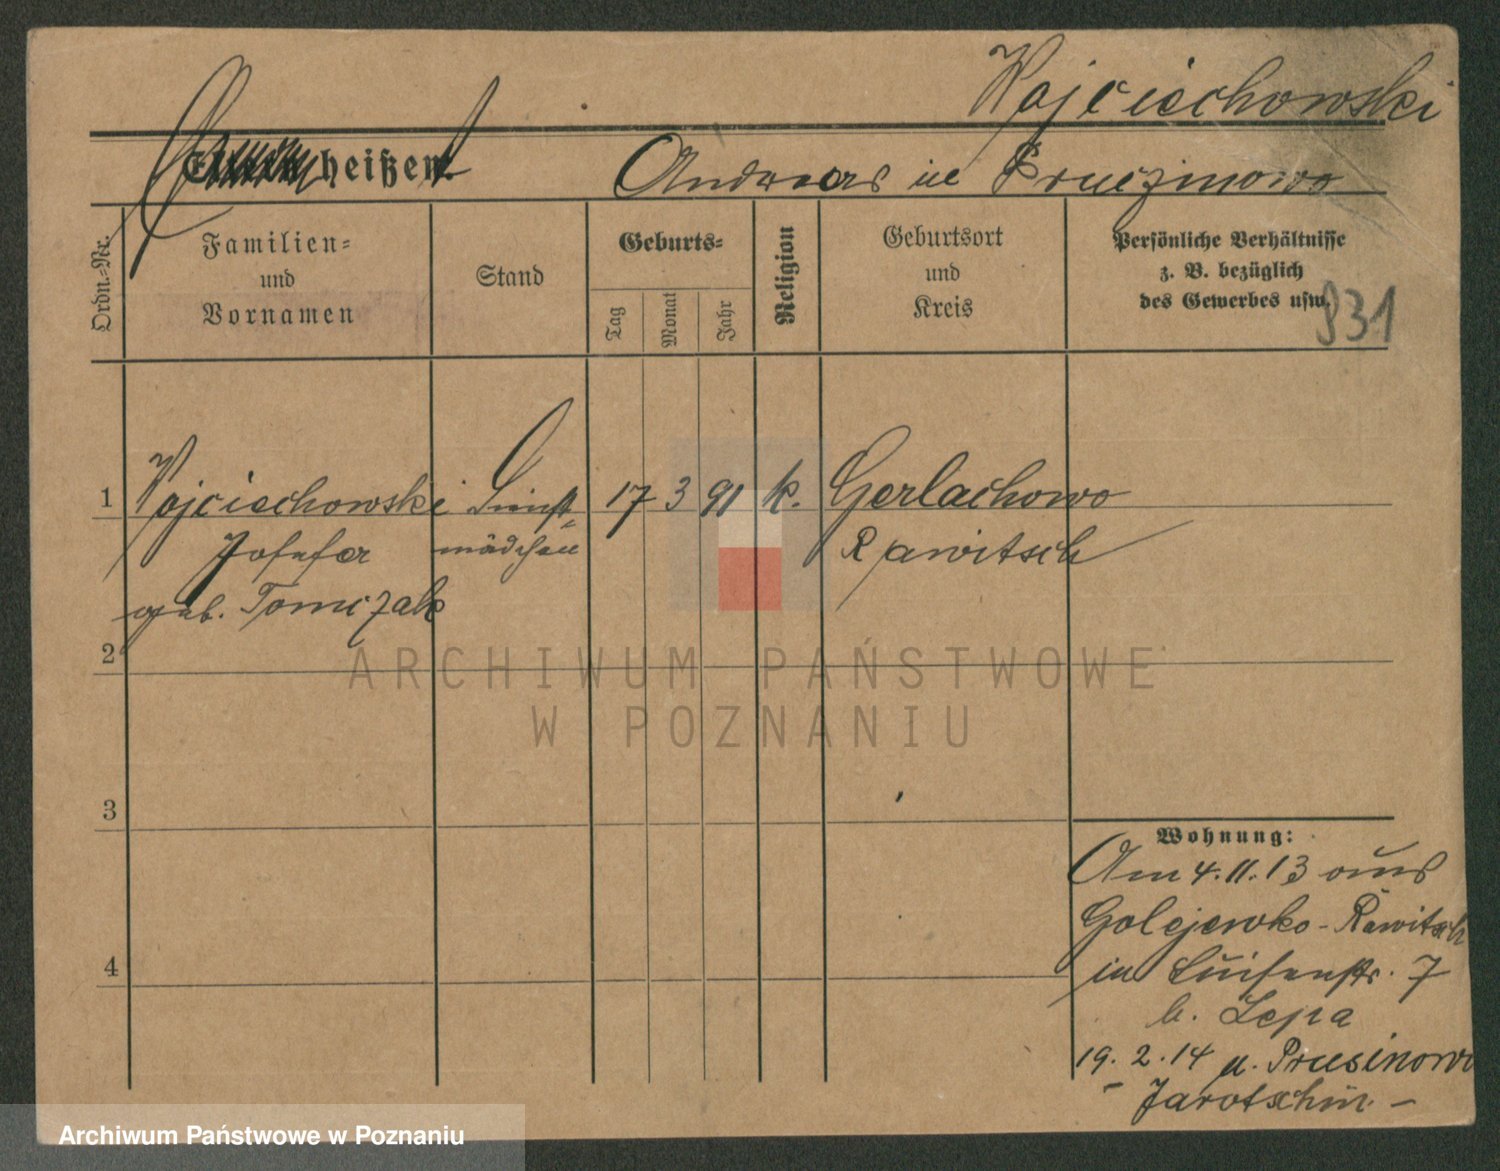 Wojciechowski
heißen:
Andreas in Pruczinowo
Ordn.-Nr.
Familien-
und
Vornamen
Stand
Geburts-
Tag
Monat
Jahr
Religion
Geburtsort
und
Kreis
Persönliche Verhältnisse
z. B. bezüglich
des Gewerbes usw.
931
1 Wojciechowski Dienst- 17 3 91 k. Gerlachowo
Josefa mädchen Rawitsch
geb. Tomczak
2
ARCHIWUM PAŃSTWOWE
W POZNANIU
3
Wohnung:
Am 4.11.13 aus
Golejewko-Rawitsch
4
in Luisenstr. 7
b. Lepa
19.2.14 n. Prusinowo
- Jarotschin -
Archiwum Państwowe w Poznaniu